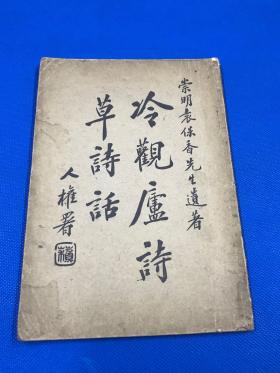 崇明袁保香先生遺著
冷觀廬詩
草詩話
人權署